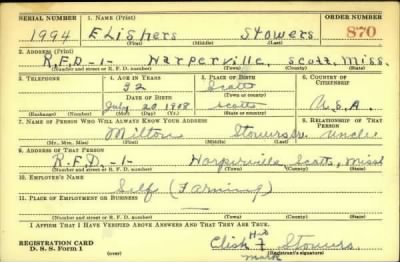 SERIAL NUMBER 1. NAME (Print) ORDER NUMBER
1994 ELishers Stowers 870
(First) (Middle) (Last)
2. ADDRESS (Print)
R.F.D-1- Harperville, Scott, Miss.
(Number and street or R. F. D. number) (Town) (County) (State)
3. TELEPHONE 4. AGE IN YEARS 5. PLACE OF BIRTH 6. COUNTRY OF CITIZENSHIP
32 Scott
(Town or county)
DATE OF BIRTH
July 20 1908 Scott U.S.A.
(Exchange) (Number) (Mo.) (Day) (Yr.) (State or country)
7. NAME OF PERSON WHO WILL ALWAYS KNOW YOUR ADDRESS 8. RELATIONSHIP OF THAT PERSON
Milton Stowers Uncle
(Mr., Mrs., Miss) (First) (Middle) (Last)
9. ADDRESS OF THAT PERSON
R.F.D. -1- Harperville, Scott, Miss
(Number and street or R. F. D. number) (Town) (County) (State)
10. EMPLOYER'S NAME
Self (Farming)
11. PLACE OF EMPLOYMENT OR BUSINESS
(Number and street or R. F. D. number) (Town) (County) (State)
I AFFIRM THAT I HAVE VERIFIED ABOVE ANSWERS AND THAT THEY ARE TRUE.
REGISTRATION CARD
D. S. S. Form 1
His
Elish X Stowers
mark
(Registrant's signature)